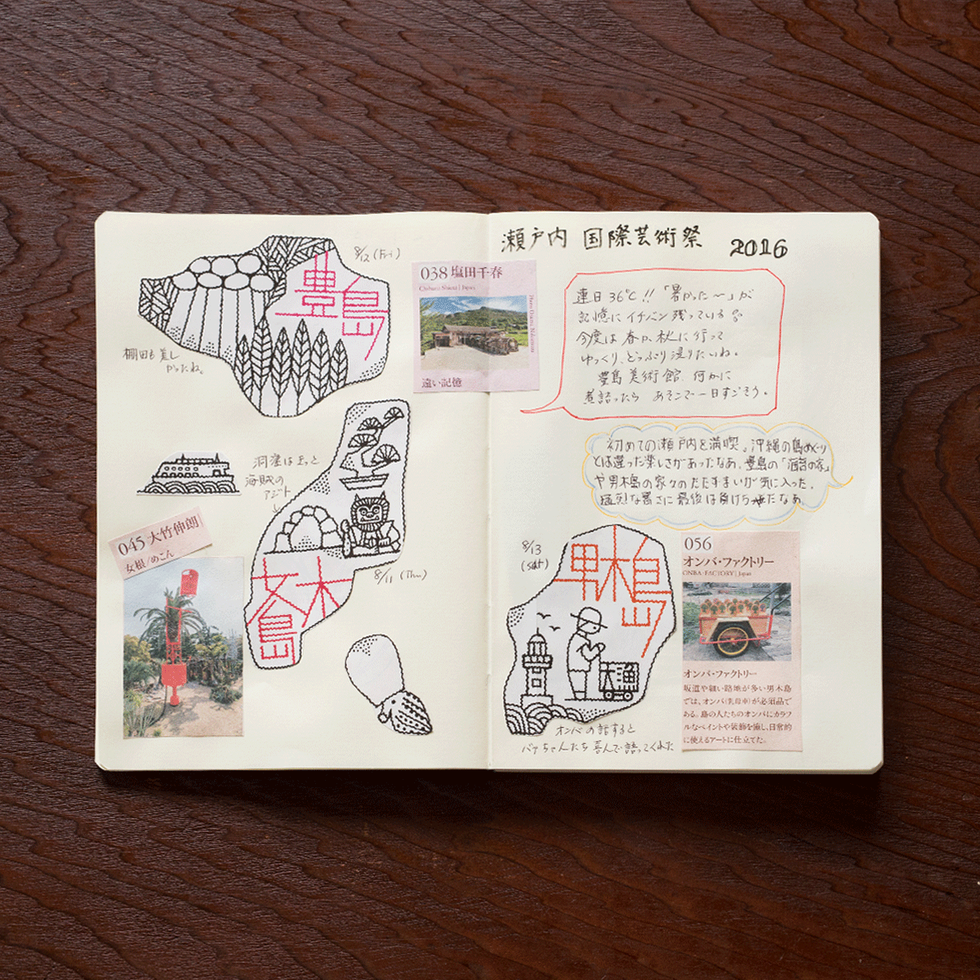 8/12 (Fri)
豊島
棚田も美し
かったね。
038 塩田千春
Chiharu Shiota | Japan
遠い記憶
洞窟はまるっと
海賊の
アジト
女木島
8/11 (Thu)
045 大竹伸朗
女根/めこん
瀬戸内 国際芸術祭 2016
連日36℃!!「暑かった〜」が
記憶にイチバン残っている
今度は春か、秋に行って
ゆっくり、どっぷり浸りたいね。
豊島美術館、何かに
煮詰ったら あそこで一日すごそう。
初めての瀬戸内を満喫。沖縄の島めぐり
とは違った楽しさがあったなあ。豊島の「
や男木島の家々のたたずまいが気に入った。
猛烈な暑さに最後は負けたなあ。
8/13
(Sat)
男木島
大漁
オンバの話すると
バアちゃんたち喜んで語ってくれた
056
オンバ・ファクトリー
ONBA FACTORY | Japan
オンバ・ファクトリー
坂道や細い路地が多い男木島
では、オンバ(乳母車)が必需品で
ある。島の人たちのオンバにカラフ
ルなペイントや装飾を施し、日常的
に使えるアートに仕立てた。